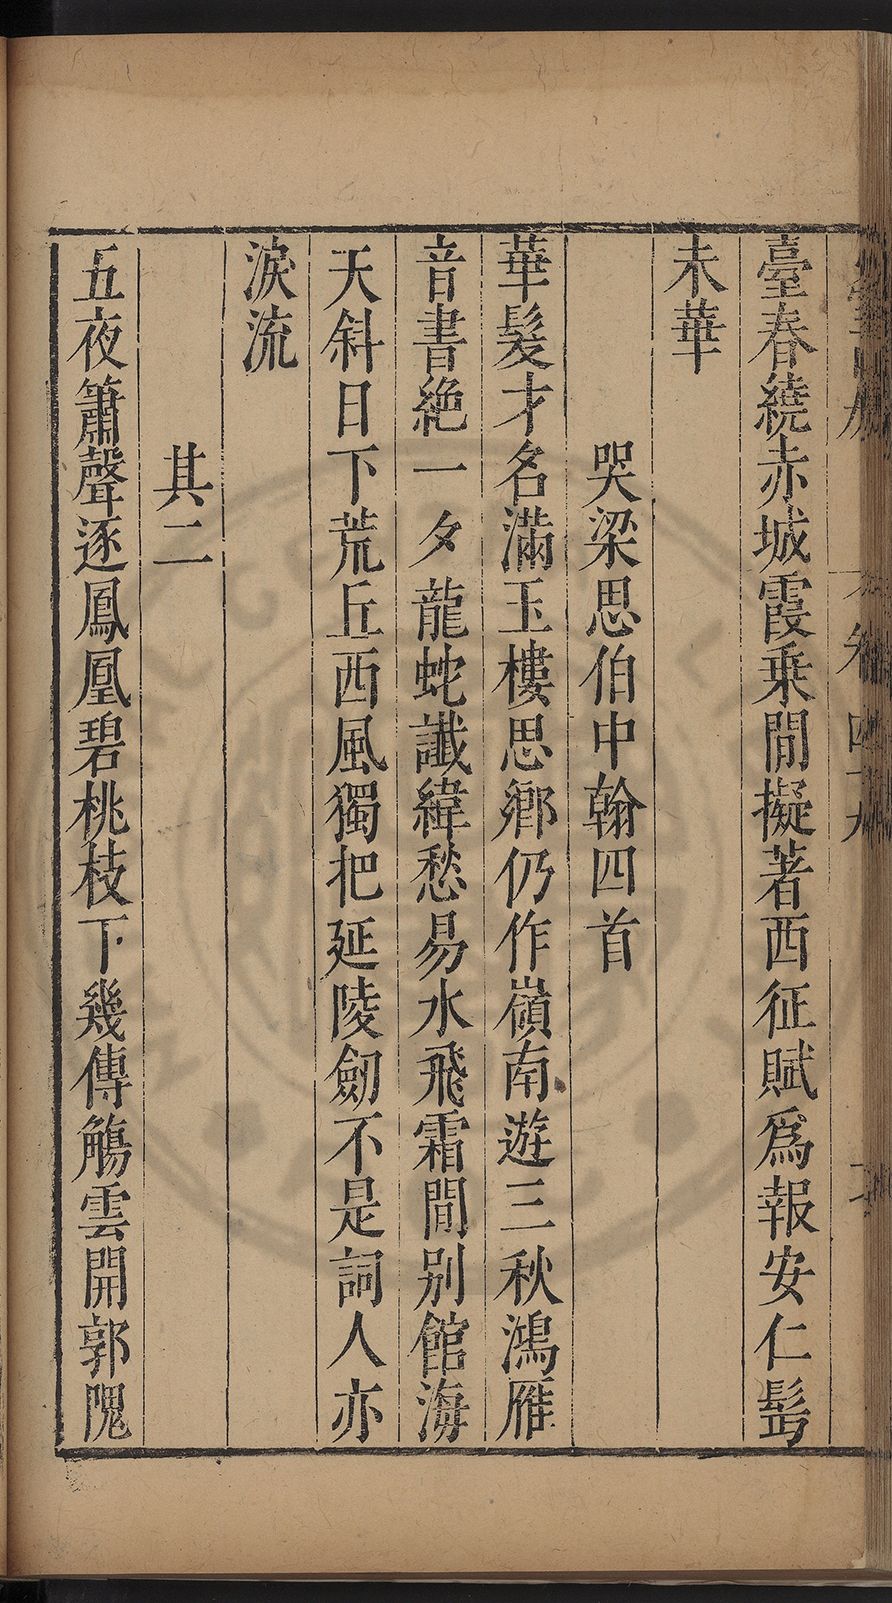 臺春繞赤城霞乗閒擬著西征賦爲報安仁髩
未華
哭梁思伯中翰四首
華髮才名滿玉樓思鄉仍作嶺南遊三秋鴻雁
音書絶一夕龍蛇讖緯愁易水飛霜間别館海
天斜日下荒丘西風獨把延陵劒不是詞人亦
淚流
其二
五夜簫聲逐鳳凰碧桃枝下幾傳觴雲開郭隗